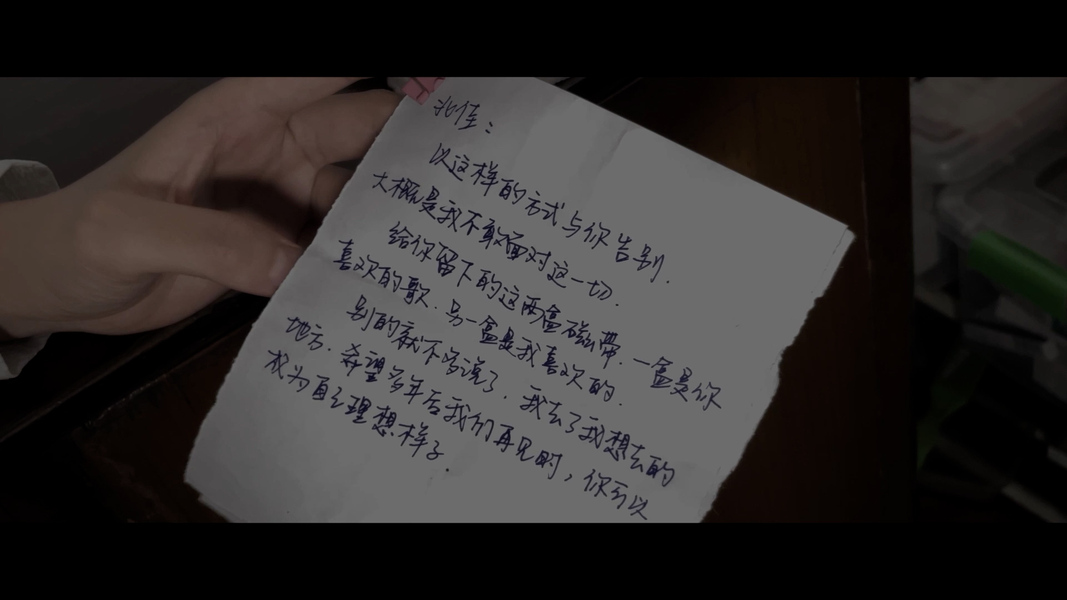 北佳：
以这样的方式与你告别.
大概是我不敢面对这一切.
给你留下的这两盒磁带.一盒是你
喜欢的歌.另一盒是我喜欢的.
别的就不多说了.我去了我想去的
地方.希望多年后我们再见时，你可以
成为自己理想样子.